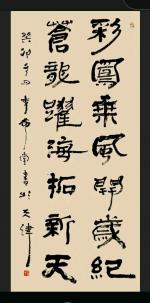 彩鳳乘風開歲紀
蒼龍躍海拓新天
癸卯 李 書於天津